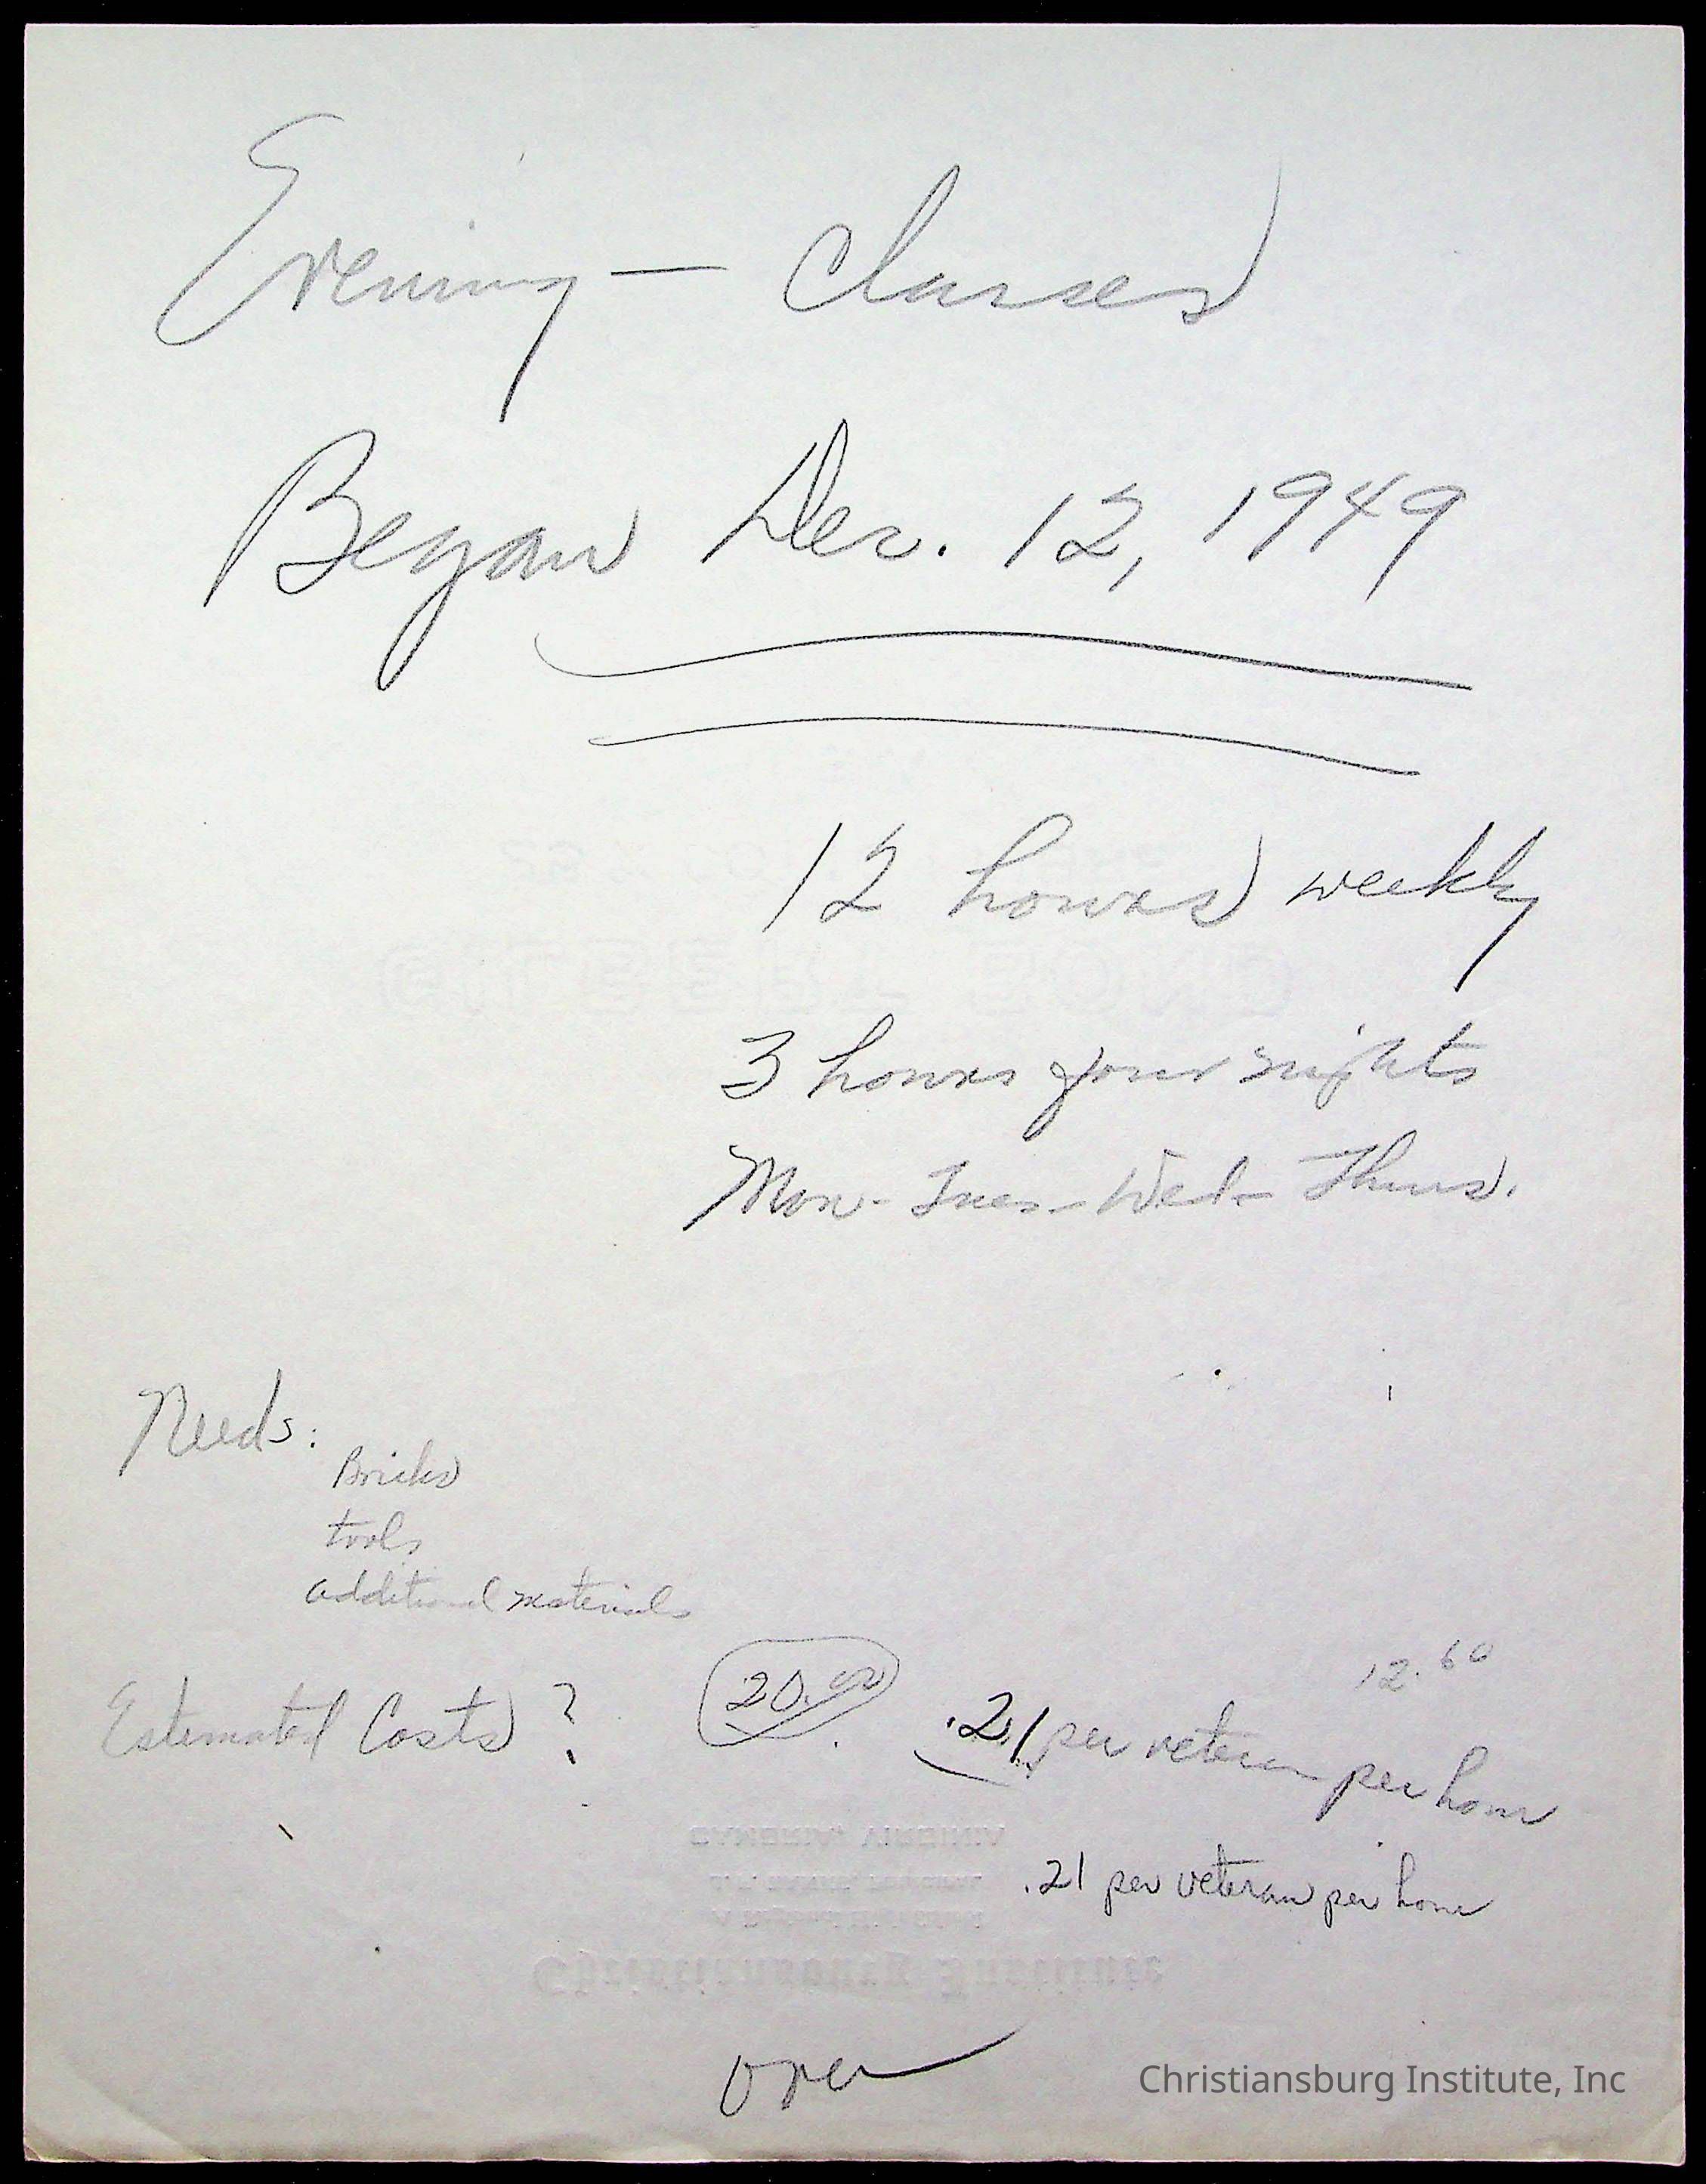 Evening — Classes
Began Dec. 12, 1949
12 hours weekly
3 hours four nights
Mon- Tues- Wed- Thurs.
Needs:
Bricks
tools
additional materials
12.60
Estemated Costs ?
20.00
.21 per veteran per hour
.21 per veteran per hour
CAMBRIA, VIRGINIA
Christiansburg Institute
over
Christiansburg Institute, Inc